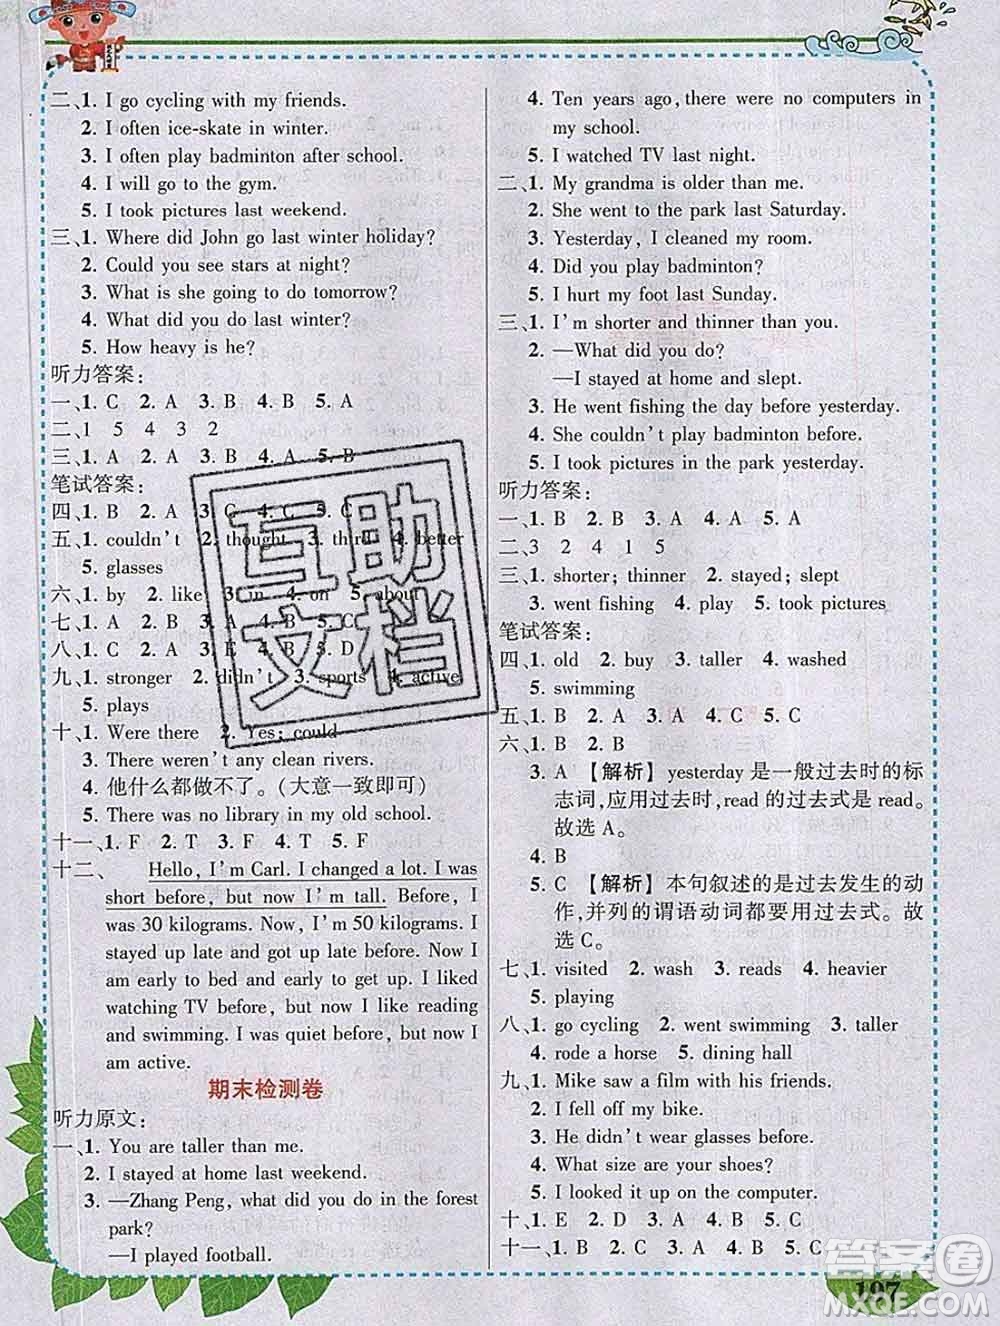 二、1. I go cycling with my friends.
2. I often ice-skate in winter.
3. I often play badminton after school.
4. I will go to the gym.
5. I took pictures last weekend.
三、1. Where did John go last winter holiday?
2. Could you see stars at night?
3. What is she going to do tomorrow?
4. What did you do last winter?
5. How heavy is he?
听力答案：
一、1. C 2. A 3. B 4. B 5. A
二、1 5 4 3 2
三、1. A 2. A 3. B 4. A 5. B
笔试答案：
四、1. B 2. A 3. C 4. C 5. C
五、1. couldn't 2. thought 3. third 4. better
5. glasses
六、1. by 2. like 3. in 4. on 5. about
七、1. B 2. A 3. C 4. A 5. B
八、1. C 2. A 3. E 4. B 5. D
九、1. stronger 2. didn't 3. sports 4. active
5. plays
十、1. Were there 2. Yes; could
3. There weren't any clean rivers.
4. 他什么都做不了。(大意一致即可)
5. There was no library in my old school.
十一、1. F 2. T 3. F 4. T 5. F
十二、 Hello, I'm Carl. I changed a lot. I was
short before, but now I'm tall. Before, I
was 30 kilograms. Now I'm 50 kilograms. I
stayed up late and got up late before. Now I
am early to bed and early to get up. I liked
watching TV before, but now I like reading
and swimming. I was quiet before, but now I
am active.
期末检测卷
听力原文：
一、1. You are taller than me.
2. I stayed at home last weekend.
3. —Zhang Peng, what did you do in the forest
park?
—I played football.
4. Ten years ago, there were no computers in
my school.
5. I watched TV last night.
二、1. My grandma is older than me.
2. She went to the park last Saturday.
3. Yesterday, I cleaned my room.
4. Did you play badminton?
5. I hurt my foot last Sunday.
三、1. I'm shorter and thinner than you.
2. —What did you do?
—I stayed at home and slept.
3. He went fishing the day before yesterday.
4. She couldn't play badminton before.
5. I took pictures in the park yesterday.
听力答案：
一、1. B 2. B 3. B 4. A 5. A
二、3 2 4 1 5
三、1. shorter; thinner 2. stayed; slept
3. went fishing 4. play 5. took pictures
笔试答案：
四、1. old 2. buy 3. taller 4. washed
5. swimming
五、1. B 2. B 3. A 4. C 5. C
六、1. B 2. B
3. A 【解析】yesterday是一般过去时的标
志词，应用过去时，read的过去式是read。
故选A。
4. B
5. C 【解析】本句叙述的是过去发生的动
作，并列的谓语动词都要用过去式。故
选C。
七、1. visited 2. wash 3. reads 4. heavier
5. playing
八、1. go cycling 2. went swimming 3. taller
4. rode a horse 5. dining hall
九、1. Mike saw a film with his friends.
2. I fell off my bike.
3. He didn't wear glasses before.
4. What size are your shoes?
5. I looked it up on the computer.
十、1. E 2. D 3. A 4. B 5. C
十一、1. B 2. B 3. A 4. C 5. B
107
互助
文档
答案圈
MXQE.COM